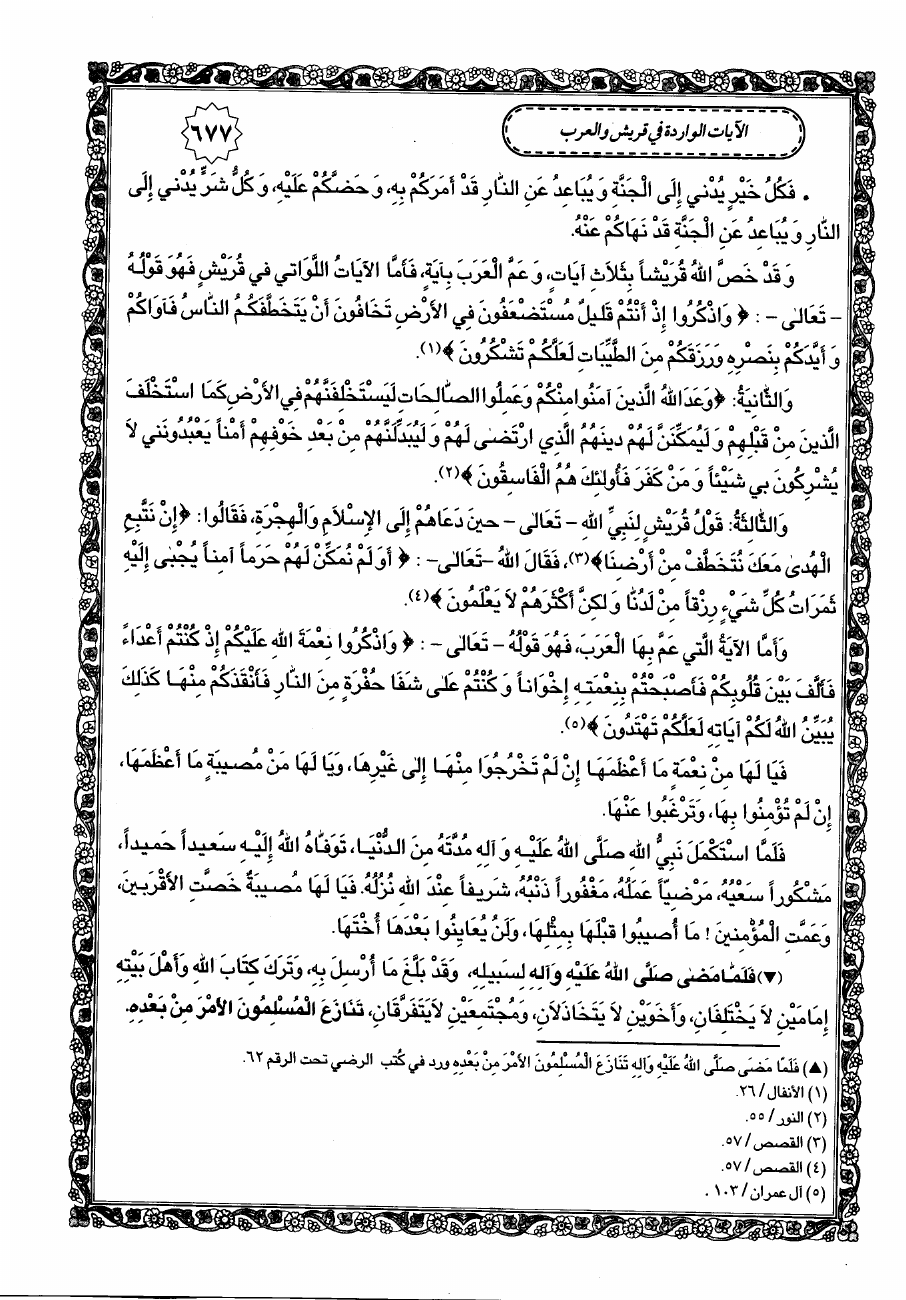 الآيات الواردة في قريش والعرب
٦٧٧
. فَكُلُّ خَيْرٍ يُدْني إِلَى الْجَنَّةِ وَ يُبَاعِدُ عَنِ النّارِ قَدْ أَمَرَكُمْ بِهِ، وَ حَضَّكُمْ عَلَيْهِ، وَ كُلُّ شَرٍّ يُدْني إِلَى
النّارِ وَ يُبَاعِدُ عَنِ الْجَنَّةِ قَدْ نَهَاكُمْ عَنْهُ.
وَ قَدْ خَصَّ اللهُ قُرَيْشاً بِثَلَاثِ آيَاتٍ، وَ عَمَّ الْعَرَبَ بِآيَةٍ، فَأَمَّا الآيَاتُ اللَّوَاتي في قُرَيْشٍ فَهُوَ قَوْلُهُ
- تَعَالى - : ﴿ وَاذْكُرُوا إِذْ أَنْتُمْ قَليلٌ مُسْتَضْعَفُونَ فِي الأَرْضِ تَخَافُونَ أَنْ يَتَخَطَّفَكُمُ النّاسُ فَآوَاكُمْ
وَ أَيَّدَكُمْ بِنَصْرِهِ وَرَزَقَكُمْ مِنَ الطَّيِّبَاتِ لَعَلَّكُمْ تَشْكُرُونَ ﴾(١).
وَالثّانِيَةُ: ﴿وَعَدَ اللهُ الَّذينَ آمَنُوا مِنْكُمْ وَعَمِلُوا الصّالِحَاتِ لَيَسْتَخْلِفَنَّهُمْ فِي الأَرْضِ كَمَا اسْتَخْلَفَ
الَّذينَ مِنْ قَبْلِهِمْ وَ لَيُمَكِّنَنَّ لَهُمْ دينَهُمُ الَّذِي ارْتَضى لَهُمْ وَ لَيُبَدِّلَنَّهُمْ مِنْ بَعْدِ خَوْفِهِمْ أَمْناً يَعْبُدُونَني لاَ
يُشْرِكُونَ بي شَيْئاً وَ مَنْ كَفَرَ فَأُولئِكَ هُمُ الْفَاسِقُونَ ﴾(٢).
وَالثّالِثَةُ: قَوْلُ قُرَيْشٍ لِنَبِيِّ اللهِ - تَعَالى - حينَ دَعَاهُمْ إِلَى الإِسْلَامِ وَالْهِجْرَةِ، فَقَالُوا: ﴿إِنْ نَتَّبِعِ
الْهُدى مَعَكَ نُتَخَطَّفْ مِنْ أَرْضِنَا﴾(٣)، فَقَالَ اللهُ -تَعَالى- : ﴿ أَوَ لَمْ نُمَكِّنْ لَهُمْ حَرَماً آمِناً يُجْبى إِلَيْهِ
ثَمَرَاتُ كُلِّ شَيْءٍ رِزْقاً مِنْ لَدُنّا وَ لكِنَّ أَكْثَرَهُمْ لاَ يَعْلَمُونَ ﴾(٤).
وَأَمَّا الآيَةُ الَّتي عَمَّ بِهَا الْعَرَبَ، فَهُوَ قَوْلُهُ - تَعَالى - : ﴿ وَاذْكُرُوا نِعْمَةَ اللهِ عَلَيْكُمْ إِذْ كُنْتُمْ أَعْدَاءً
فَأَلَّفَ بَيْنَ قُلُوبِكُمْ فَأَصْبَحْتُمْ بِنِعْمَتِهِ إِخْوَاناً وَ كُنْتُمْ عَلى شَفَا حُفْرَةٍ مِنَ النّارِ فَأَنْقَذَكُمْ مِنْهَا كَذلِكَ
يُبَيِّنُ اللهُ لَكُمْ آيَاتِهِ لَعَلَّكُمْ تَهْتَدُونَ ﴾(٥).
فَيَا لَهَا مِنْ نِعْمَةٍ مَا أَعْظَمَهَا إِنْ لَمْ تَخْرُجُوا مِنْهَا إِلى غَيْرِهَا، وَيَا لَهَا مَنْ مُصيبَةٍ مَا أَعْظَمَهَا،
إِنْ لَمْ تُؤْمِنُوا بِهَا، وَتَرْغَبُوا عَنْهَا.
فَلَمَّا اسْتَكْمَلَ نَبِيُّ اللهِ صَلَّى اللهُ عَلَيْهِ وَ آلِهِ مُدَّتَهُ مِنَ الدُّنْيَا، تَوَفّاهُ اللهُ إِلَيْهِ سَعيداً حَميداً،
مَشْكُوراً سَعْيُهُ، مَرْضِيّاً عَمَلُهُ، مَغْفُوراً ذَنْبُهُ، شَريفاً عِنْدَ اللهِ نُزُلُهُ. فَيَا لَهَا مُصيبَةً خَصَّتِ الأَقْرَبينَ،
وَعَمَّتِ الْمُؤْمِنينَ! مَا أُصيبُوا قَبْلَهَا بِمِثْلِهَا، وَلَنْ يُعَايِنُوا بَعْدَهَا أُخْتَهَا.
(▼) فَلَمّا مَضى صَلَّى اللهُ عَلَيْهِ وَآلِهِ لِسَبيلِهِ، وَقَدْ بَلَّغَ مَا أُرْسِلَ بِهِ، وَتَرَكَ كِتَابَ اللهِ وَأَهْلَ بَيْتِهِ
إِمَامَيْنِ لاَ يَخْتَلِفَانِ، وَأَخَوَيْنِ لاَ يَتَخَاذَلاَنِ، وَمُجْتَمِعَيْنِ لاَ يَتَفَرَّقَانِ، تَنَازَعَ الْمُسْلِمُونَ الأَمْرَ مِنْ بَعْدِهِ.
(▲) فَلَمّا مَضَى صَلَّى اللهُ عَلَيْهِ وَآلِهِ تَنَازَعَ الْمُسْلِمُونَ الأَمْرَ مِنْ بَعْدِهِ ورد في كُتب الرضي تحت الرقم ٦٢.
(١) الأنفال / ٢٦.
(٢) النور / ٥٥.
(٣) القصص / ٥٧.
(٤) القصص / ٥٧.
(٥) آل عمران / ١٠٣ .